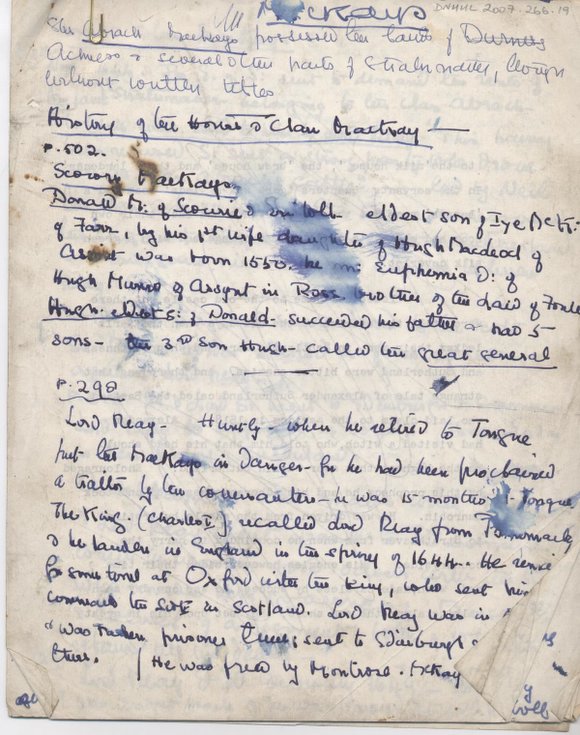 MacKays
DNHHL 2007.266.19
The Abrach Mackays possessed the lands of Durness
Achness & several other parts of Strathnaver, though
without written titles
History of the House & Clan Mackay —
p. 502.
Scourie MacKays.
Donald M: of Scourie & Eriboll eldest son of Iye McK:
of Farr, by his 1st wife daughter of Hugh Macleod of
Assint was born 1550. he m: Euphemia D: of
Hugh Munro of Assynt in Ross, brother of the laird of Foulis
Hugh eldest s: of Donald succeeded his father & had 5
sons – the 3rd son Hugh – called the great general
p. 298
Lord Reay – Huntly – when he retired to Tongue
put the MacKays in Danger – for he had been proclaimed
a traitor by the covenanters – he was 15 months at Tongue,
The King (Charles I) recalled Lord Reay from Denmark
& he landed in England in the spring of 1644. He
for some time at Oxford with the King, who sent him
command the in Scotland. Lord Reay was in
"was taken prisoner & sent to Edinburgh
there. / He was freed by Montrose.